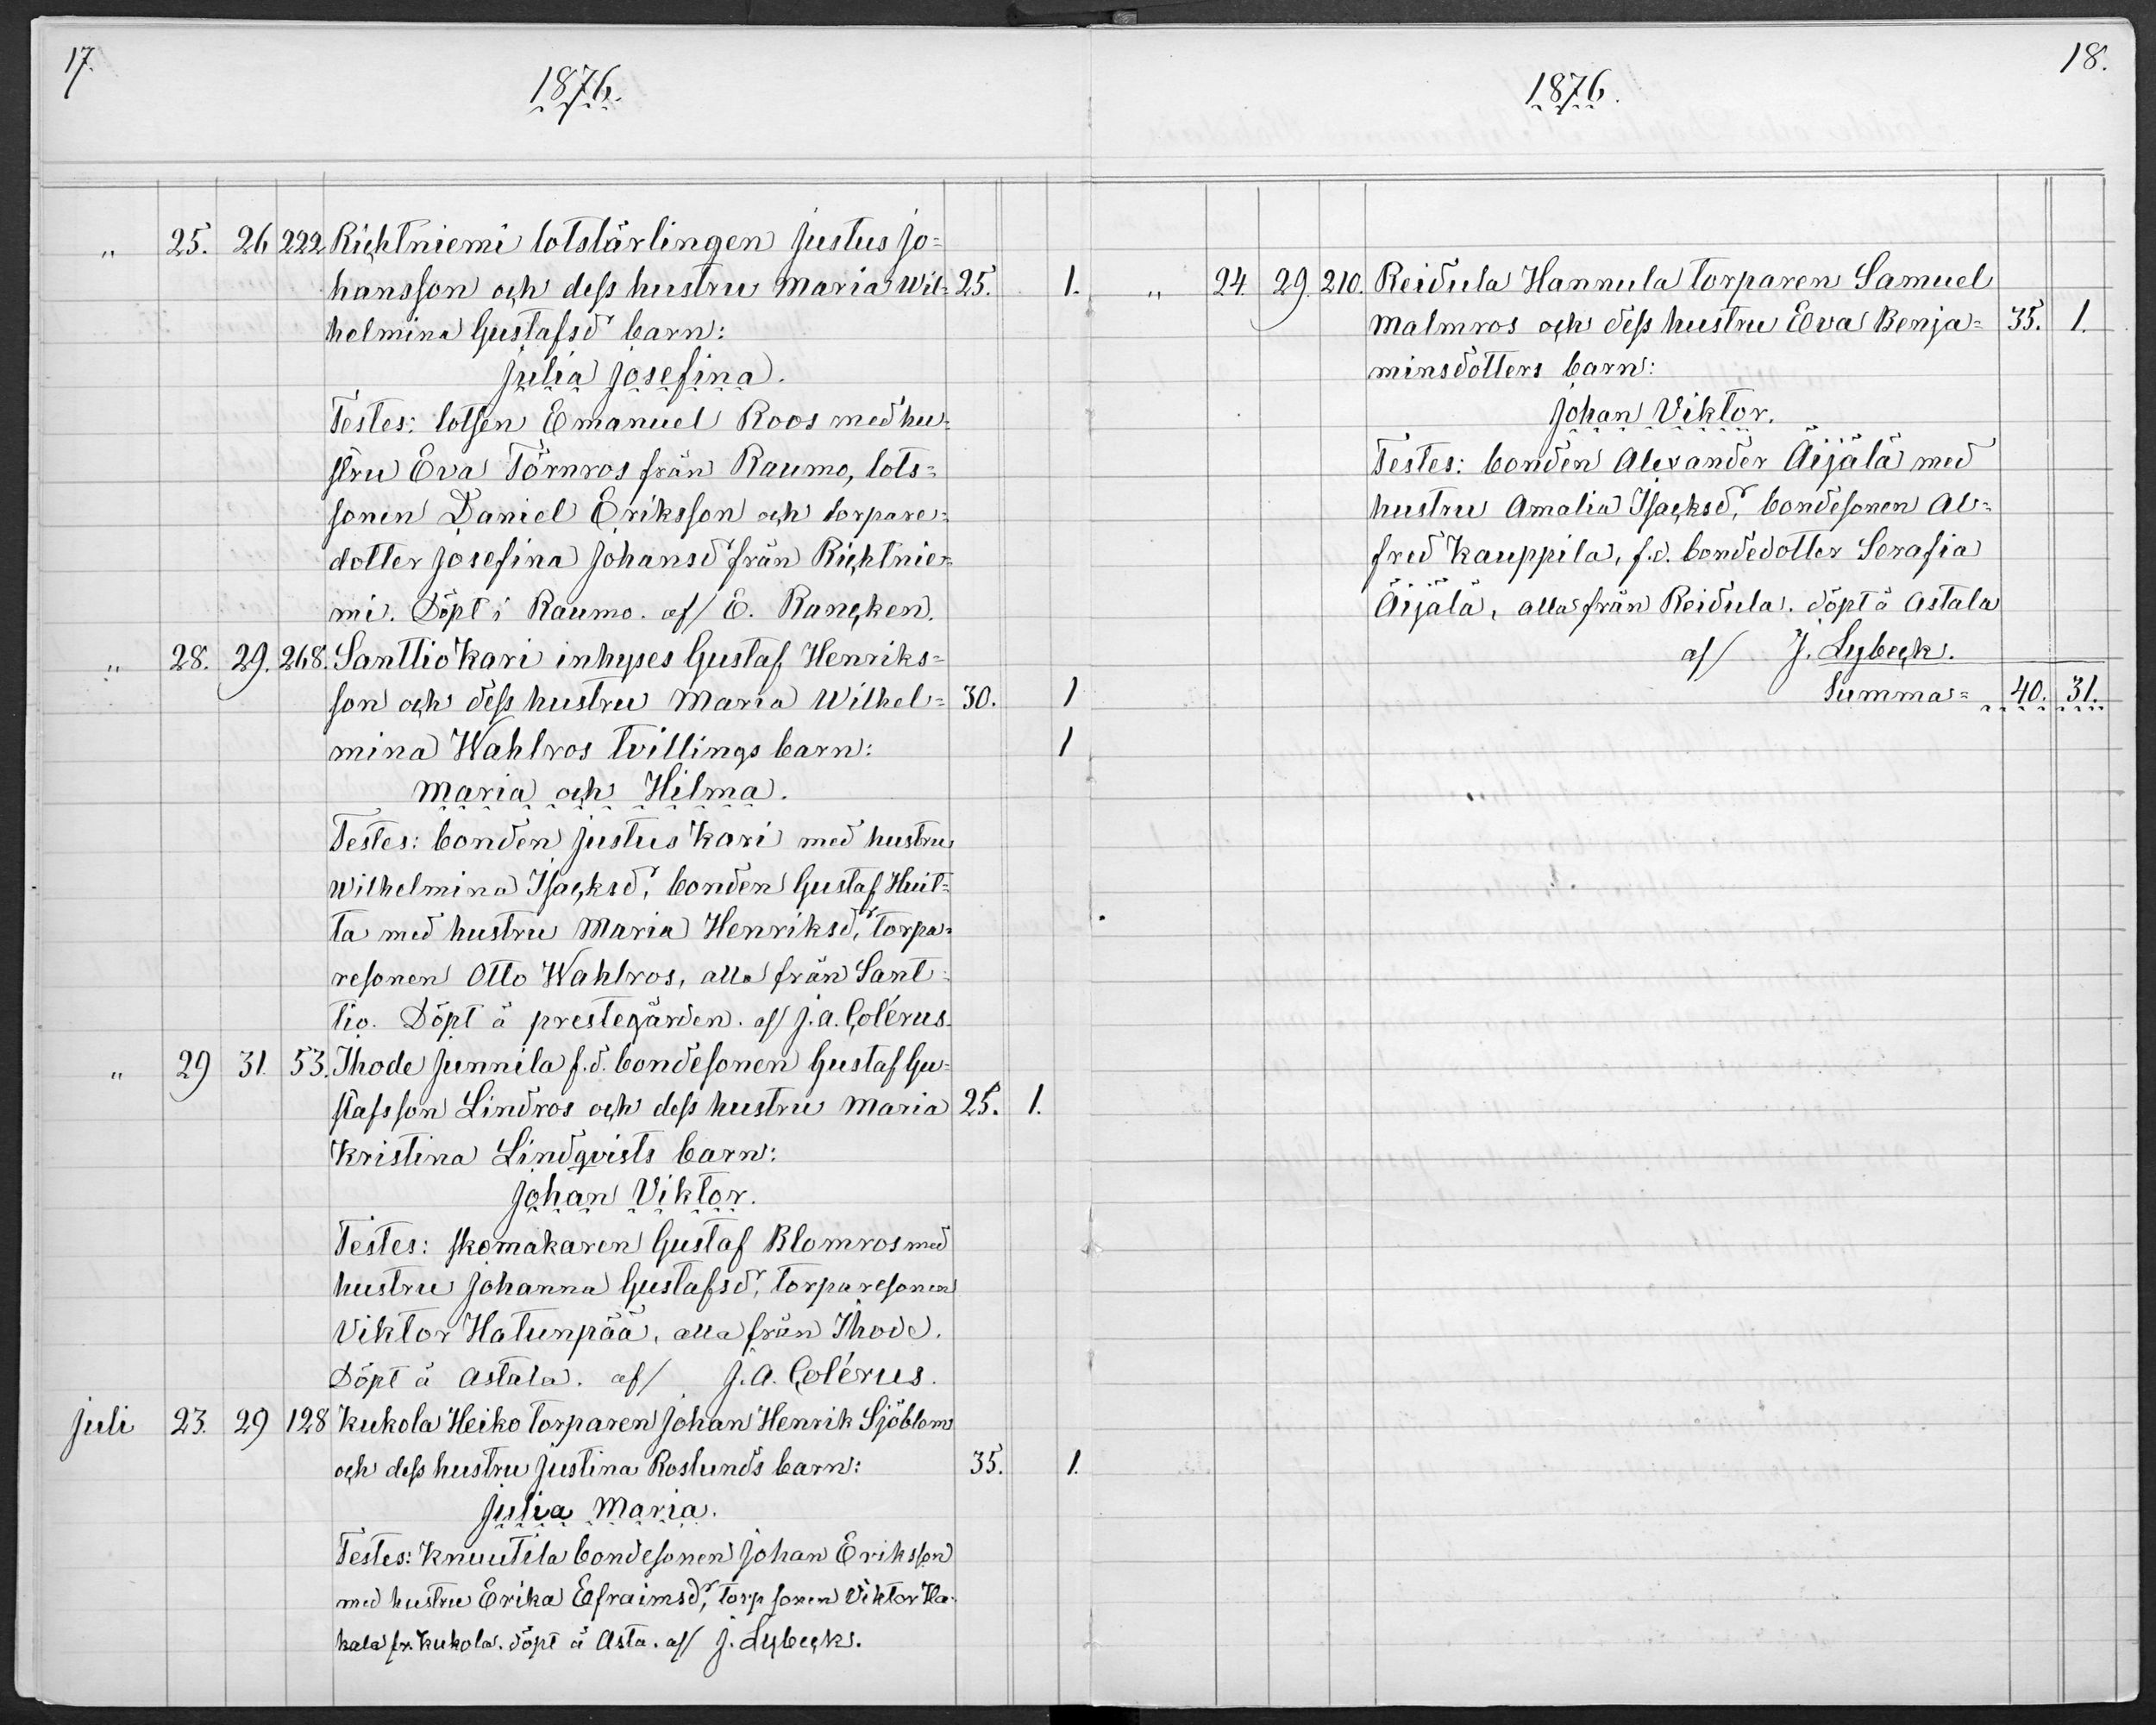 17.
1876.
" 25. 26 222 Richtniemi lotslärlingen Justus Jo=
hansson och dess hustru Maria Wil= 25. 1.
helmina Gustafsdr barn:
Julia Josefina.
Testes: lotsen Emanuel Roos med hu=
stru Eva Törnros från Raumo, lots=
sonen Daniel Eriksson och torpare=
dotter Josefina Johansdr från Richtnie=
mi. Döpt i Raumo. af/ E. Rancken.
" 28. 29. 268. Santtio Kari inhyses Gustaf Henriks=
son och dess hustru Maria Wilhel= 30. 1
mina Wahlros tvillings barn: 1
Maria och Hilma.
Testes: bonden Justus Kari med hustru
Wilhelmina Isacksdr, bonden Gustaf Huit=
ta med hustru Maria Henriksdr, torpa=
resonen Otto Wahlros, alla från Sant=
tio. Döpt å prestegården. af/ J. A. Colérus.
" 29 31. 53. Ihode Junnila f.d. bondesonen Gustaf Gu=
stafsson Lindros och dess hustru Maria 25. 1.
Kristina Lindqvists barn:
Johan Viktor.
Testes: skomakaren Gustaf Blomros med
hustru Johanna Gustafsdr, torparesonen
Viktor Hatunpää, alla från Ihode.
Döpt å Astala. af/ J. A. Colérus.
Juli 23. 29 128 Kukola Heiko torparen Johan Henrik Sjöbloms
och dess hustru Justina Roslunds barn: 35. 1.
Julia Maria.
Testes: Knuutila bondesonen Johan Eriksson
med hustru Erika Efraimsdr, torp sonen Viktor Ha=
kala fr. Kukola. döpt å Asta. af/ J. Lybeck.
18.
1876.
" 24 29. 210. Reidula Hannula torparen Samuel
Malmros och dess hustru Eva Benja= 35. 1.
minsdotters barn:
Johan Viktor.
Testes: bonden Alexander Äijälä med
hustru Amalia Isacksdr, bondesonen Al=
fred Kauppila, f.d. bondedotter Serafia
Äijälä, alla från Reidula. döpt å Astala
af/ J. Lybeck.
Summa= 40. 31.